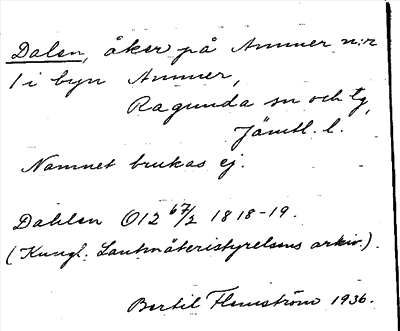 Dalen, åker på Ammer n:r
1 i byn Ammer,
Ragunda sn och tg,
Jämtl. l.
Namnet brukas ej.
Dahlen O12 67/2 1818-19.
(Kungl. Lantmäteristyrelsens arkiv.).
Bertil Flemström 1936.